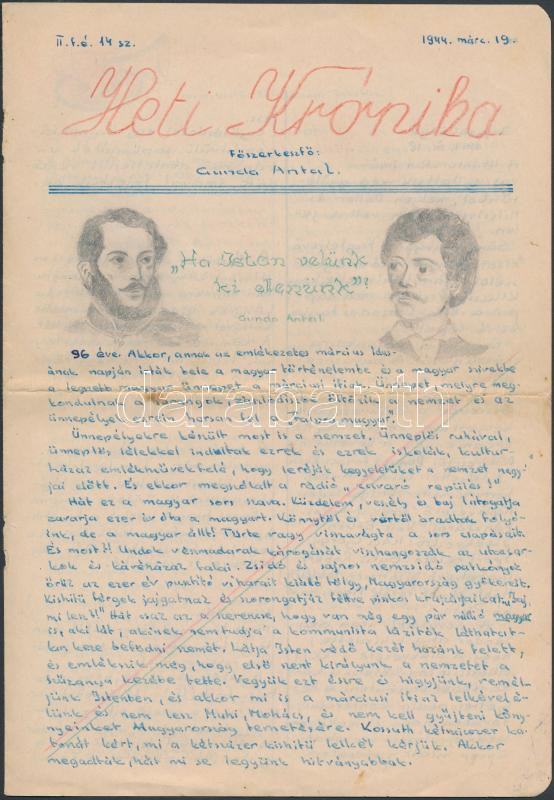 II. f. é. 14 sz. 1944. márc. 19.
Heti Krónika
Főszerkesztő:
Gunda Antal.
"Ha Isten velünk
ki ellenünk"?
Gunda Antal
96 éve. Akkor, annak az emlékezetes március Idu-
sának napján írták bele a magyar történelembe és a magyar szivekbe
a legszebb magyar ünnepet a márciusi ifjak. Ünnepet, melyre meg-
kondulnak a harangok, ebbe öltözik a nemzet és az
ünnepélyek harsan fel "Talpra magyar".
Ünnepélyekre készült most is a nemzet. Ünneplős ruhával,
ünneplős lélekkel indultak ezrek és ezrek iskolák, kultur-
házak emlékművek felé, hogy leróják kegyeletüket a nemzet nagy-
jai előtt. És ekkor megszólalt a rádió "zavaró repülés!"
Hát ez a magyar sors szava. Küzdelem, veszély és baj látogatja
zavarja ezer év óta a magyart. Könnytől és vértől áradtak folyó-
ink, de a magyar állt! Türte vagy visszavágta a sors csapásait.
És most?! Undok vészmadarak károgását visszhangozzák az utcasar-
kok és kávéházak falai. Zsidó és sajnos nemzsidó patkányok
őrlik az ezer év pusztító viharait kiálló tölgy, Magyarország gyökereit.
Kishitü férgek jajgatnak és szorongatják féltve piszkos krajcárjaikat "Jaj,
mi lesz!" Hát csak az a szerencse, hogy van még egy pár millió magyar
is, aki lát, akinek nem tudja a kommunista lázítók láthatat-
lan keze befogni szemét. Látja Isten védő kezét hazánk felett,
és emlékszik még, hogy első szent királyunk a nemzetet a
szűzanya kezébe tette. Vegyük ezt észre és higyjünk, remél-
jünk Istenben, és akkor mi is a márciusi ifjak lelkévé le-
szünk és nem lesz Muhi, Mohács, és nem kell gyűjteni köny-
nyeinket Magyarország temetésére. Kossuth kétszázezer ka-
tonát kért, mi a kétszázezer kishitü lelkét kérjük. Akkor
megadták, hát mi se legyünk hitványabbak.
darabanth